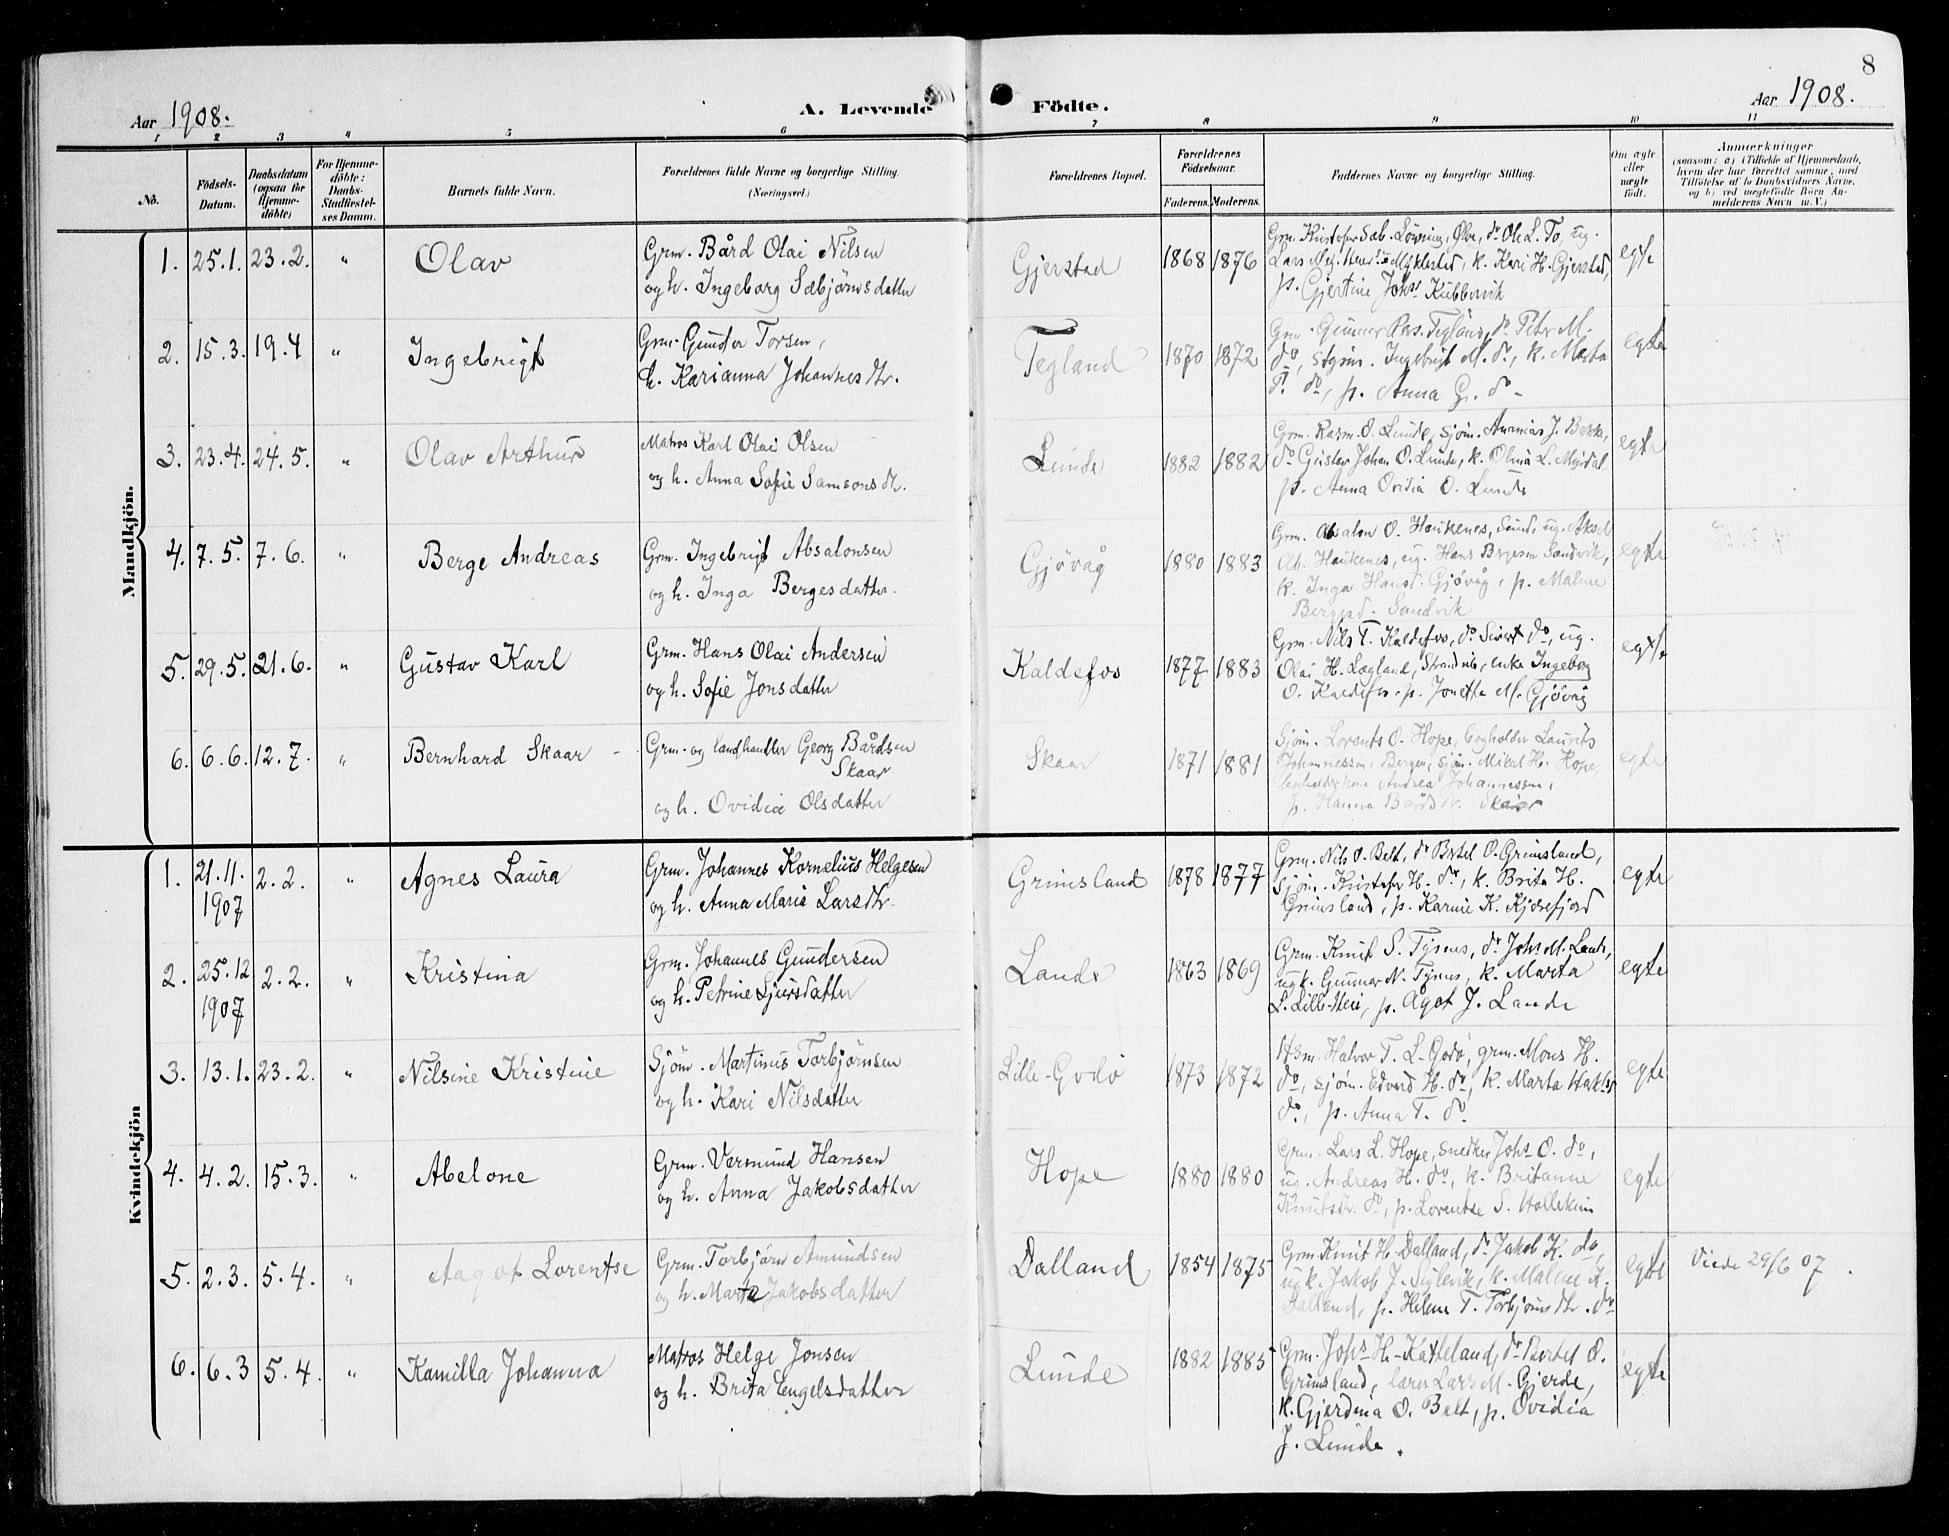 8
Aar 1908.
A. Levende Födte.
Aar 1908.
1 2 3 4 5 6 7 8 9 10 11
No.
Födsels-Datum.
Daabsdatum (ogsaa for Hjemme-döbte)
For Hjemme-döbte: Daabs-Stadfæstel-ses Datum.
Barnets fulde Navn.
Forældrenes fulde Navne og borgerlige Stilling.
(Næringsvei.)
Forældrenes Bopæl.
Forældrenes Födselsaar.
Faderens. Moderens.
Faddernes Navne og borgerlige Stilling.
Om ægte eller uægte født.
Anmærkninger
(saasom: a) i Tilfælde af Hjemmedaab, hvem der har forrettet samme, med Tilföielse af to Daabsvidners Navne, og b) ved uegtefödte Börn An-melderens Navn m. V.)
Mandkjön.
1. 25.1. 23.2. " Olav
Grm. Bård Olai Nilsen
og h. Ingeborg Sæbjörnsdatter
Gjerstad 1868 1876
Lars Myklestad, k. Kari H. Gjerstad,
p. Gjertine Johs Kubbervik
egte
2. 15.3. 19.4 " Ingebrigt
Grm. Gunner Torsen,
h. Karianna Johannesdtr.
Tegland 1870 1872
Grm. Gunner Ras. Tegland, do Peter M.
do, Ingebrigt M. do, k. Marta
do, p. Anna G. do
egte
3. 23.4. 24.5. " Olav Arthur
Matros Karl Olai Olsen
og h. Anna Sofie Samsonsdtr.
Lunde 1882 1882
Grm. Rasm. O. Lunde, sjöm. Ananias J. Bekke,
do Gustav Johan O. Lunde, k. Olina L. Myrdal
p. Anna Ovidia O. Lunde
egte
4. 7.5. 7.6. " Berge Andreas
Grm. Ingebrigt Absalonsen
og h. Inga Bergesdatter.
Gjövåg 1880 1883
Grm. Absalon O. Haukenes, Sund, ug. Aksel
Ab. Haukenes, ug. Hans Bergesen Sandvik,
k. Inga Hansd. Gjövåg, p. Malene
Bergesd. Sandvik
egte
5. 29.5. 21.6. " Gustav Karl
Grm. Hans Olai Andersen
og h. Sofie Jonsdatter
Kaldefos 1877 1883
Grm. Nils T. Kaldefos, do Sivert do, ug.
Olai H. Lægland, Strandvik, enke Ingeborg
O. Kaldefos, p. Jonetta M. Gjövåg
egte
6. 6.6. 12.7. " Bernhard Skaar
Grm. og landhandler Georg Bårdsen
Skaar
og h. Ovidia Olsdatter
Skaar 1871 1881
Sjöm. Lorents O. Hope, bogholder Laurits
Johannessen, Bergen, sjöm. Mikal H. Hope,
Andrea Johannessen,
p. Hanna Bårdsdtr. Skaar
egte
Kvindekjön
1. 21.11. 1907 2.2. " Agnes Laura
Grm. Johannes Kornelius Helgesen
og h. Anna Marie Larsdtr.
Grimsland 1878 1877
Grm. Nils O. Belt, do Bertel O. Grimsland,
Sjöm. Kristofer H. do, k. Brita H.
Grimsland, p. Karine K. Kjosefjord
egte
2. 25.12 1907 2.2. " Kristina
Grm. Johannes Gundersen
og h. Petrine Sjursdatter
Lande 1863 1869
Grm. Knut S. Tysnes, do Johs M. Lande,
ugk. Gunner N. Tysnes, k. Marta
L. Lille-Heie, p. Ågot J. Lande
egte
3. 13.1. 23.2. " Nilsine Kristine
Sjöm. Martinus Torbjörnsen
og h. Kari Nilsdatter
Lille-Godö 1873 1872
Hsm. Halvor T. L-Godö, grm. Mons H.
do, sjöm. Edvard H. do, k. Marta
do, p. Anna T. do
egte
4. 4.2. 15.3. " Abelone
Grm. Vermund Hansen
og h. Anna Jakobsdatter
Hope 1880 1880
Grm. Lars L. Hope, snedker Johs O. do,
ug. Andreas H. do, k. Britanne
Knutsdtr. do, p. Lorentse S. Hallekim
egte
5. 2.3. 5.4. " Aagot Lorentse
Grm. Torbjörn Amundsen
og h. Marta Jakobsdatter
Dalland 1854 1875
Grm. Knut H. Dalland, do Jakob K. do,
ugk. Jakob J. k. Malene K.
Dalland, p. Helene T. Torbjörnsdtr. do
egte
Viede 29/6 07.
6. 6.3 5.4. " Kamilla Johanna
Matros Helge Jonsen
og h. Brita Engelsdatter
Lunde 1882 1885
Grm. Johs H. Katteland, do Bertel O.
Grimsland, lærer Lars M. Gjerde,
k. Gjerdina O. Belt, p. Ovidia
J. Lunde.
egte